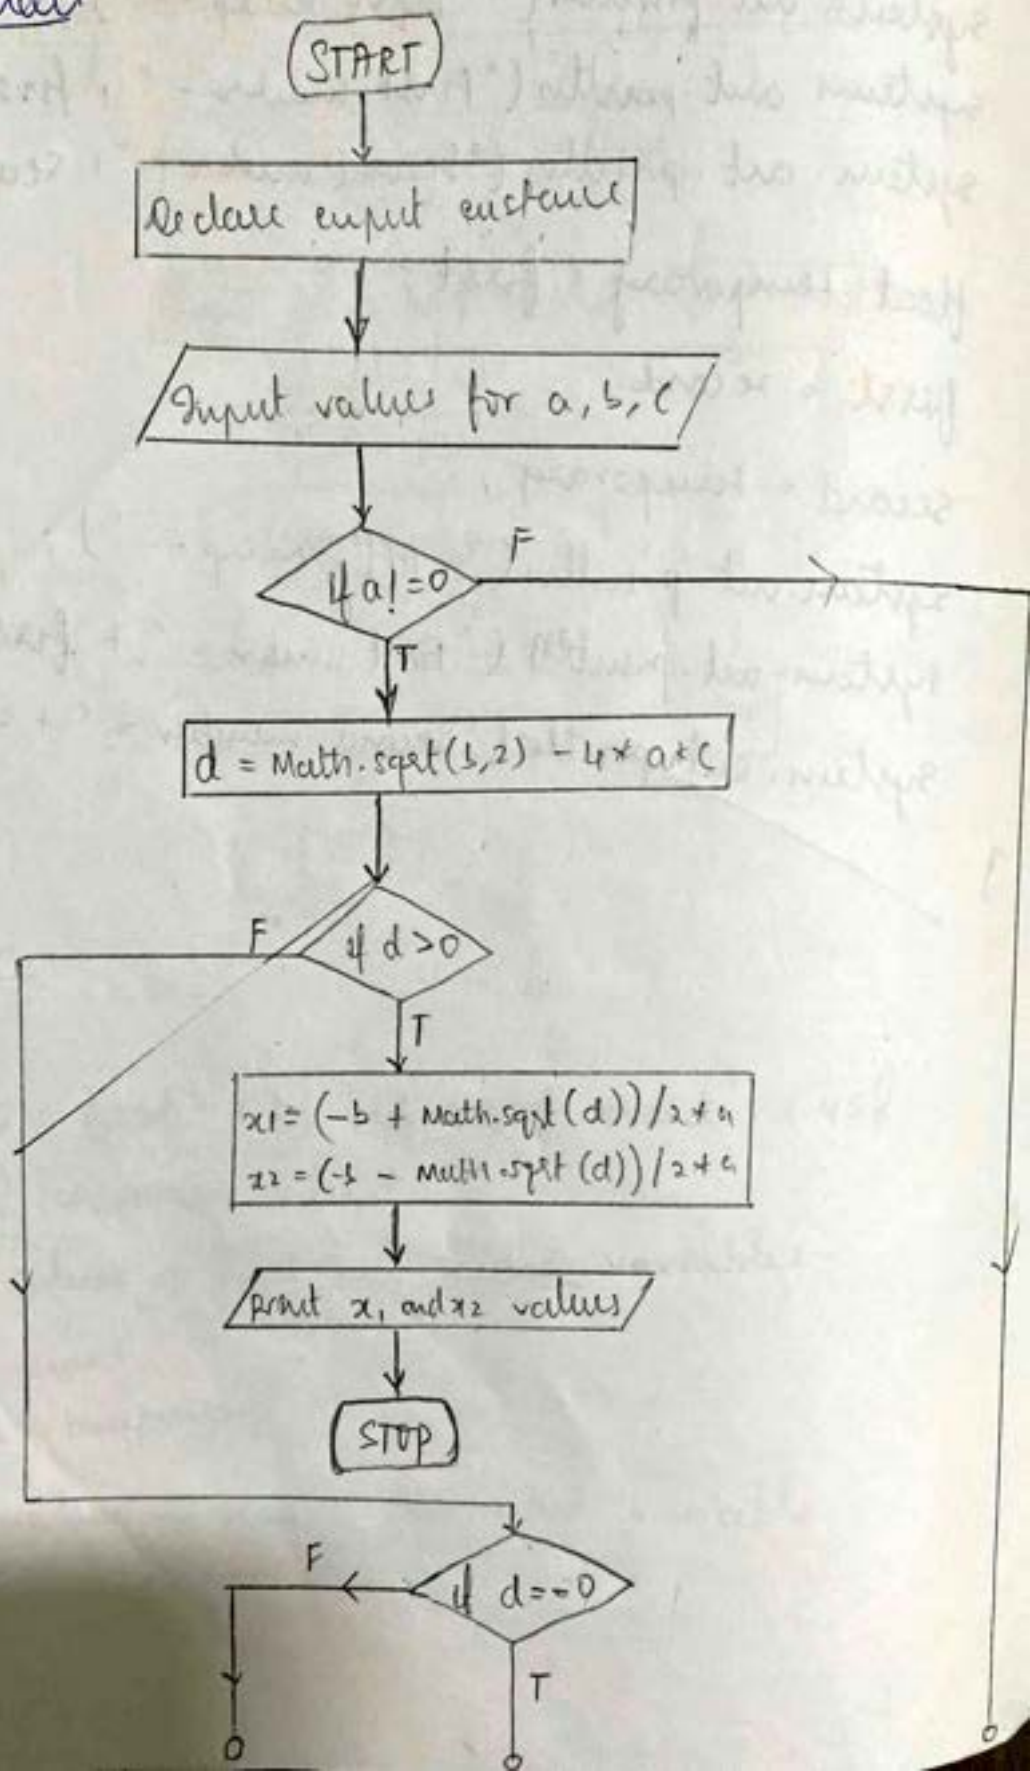 START
Declare input instance
Input values for a, b, c
F
if a!=0
T
d = Math.sqrt(b,2) - 4* a*c
F
if d>0
T
x1= (-b + Math.sqrt(d))/2*a
x2 = (-b - Math.sqrt(d))/2*a
print x1 and x2 values
STOP
F
if d==0
T